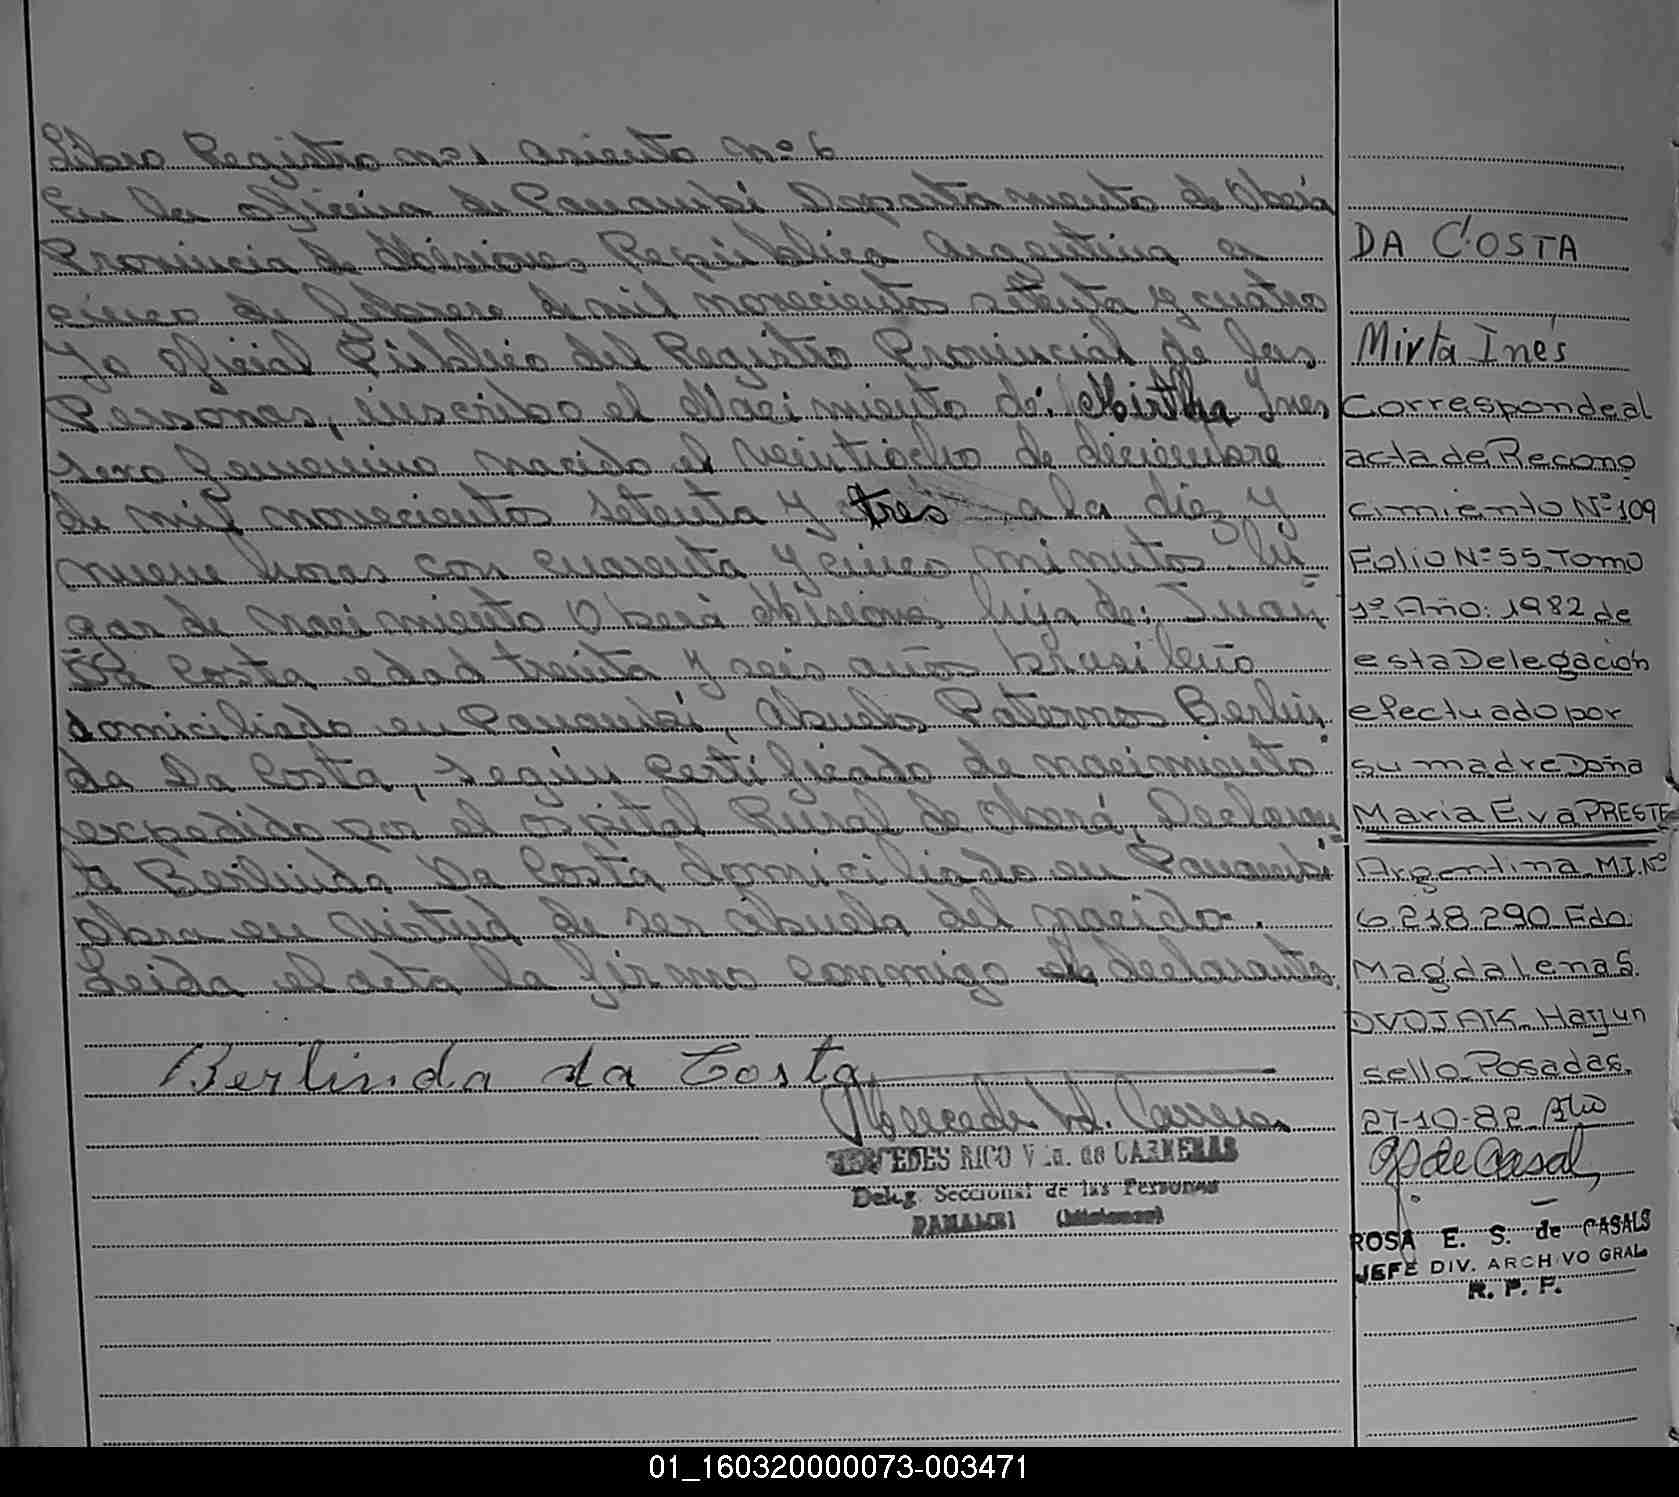 Libro Registro nº 1 asiento nº 6
En la oficina de Panambi Departamento de Oberá
Provincia de Misiones Republica Argentina a
cinco de de mil novecientos setenta y cuatro
Yo oficial Público del Registro Provincial de las
Personas, inscribo el Nacimiento de: Mirtha Ines
sexo femenino nacido el veintiocho de diciembre
de mil novecientos setenta y tres a la diez y
nueve horas con cuarenta y cinco minutos lu
gar de nacimiento Oberá Misiones hija de: Juan
Da Costa edad treinta y seis años brasileño
domiciliado en Panambi, abuelos Paternos Berlin
da Da Costa, según certificado de nacimiento
expedido por el ospital Rural de Oberá, Declaran
te Berlinda Da Costa domiciliado en Panambi
obra en virtud de ser abuela del nacido.
Leida el acta la firmo conmigo la declarante.
Berlinda da Costa
MERCEDES RICO Vda. de CARNERAS
Deleg. Seccional de las Personas
PANAMBI (Misiones)
DA COSTA
Mirta Inés
Corresponde al
acta de Recono
cimiento Nº 109
Folio Nº 55 Tomo
1º Año: 1982 de
esta Delegación
efectuado por
su madre Doña
Maria Eva PRESTE
Argentina M.I. Nº
6.218.290 Fdo.
Magdalena S.
DVOJAK. Hay un
sello Posadas.
27-10-82
de Casals
ROSA E. S. de CASALS
JEFE DIV. ARCHIVO GRAL
R. P. P.
01_160320000073-003471